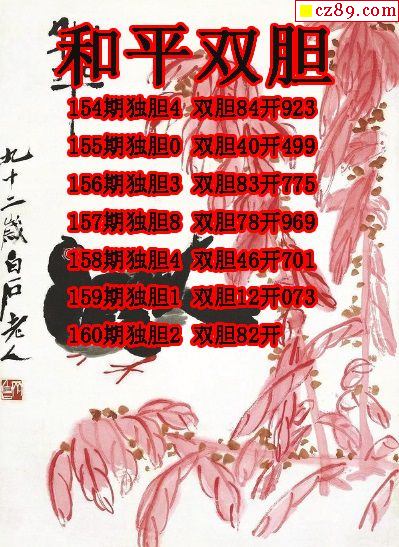 cz89.com
和平双胆
154期独胆4 双胆84开923
155期独胆0 双胆40开499
156期独胆3 双胆83开775
157期独胆8 双胆78开969
158期独胆4 双胆46开701
159期独胆1 双胆12开073
160期独胆2 双胆82开
九十二歲白石老人